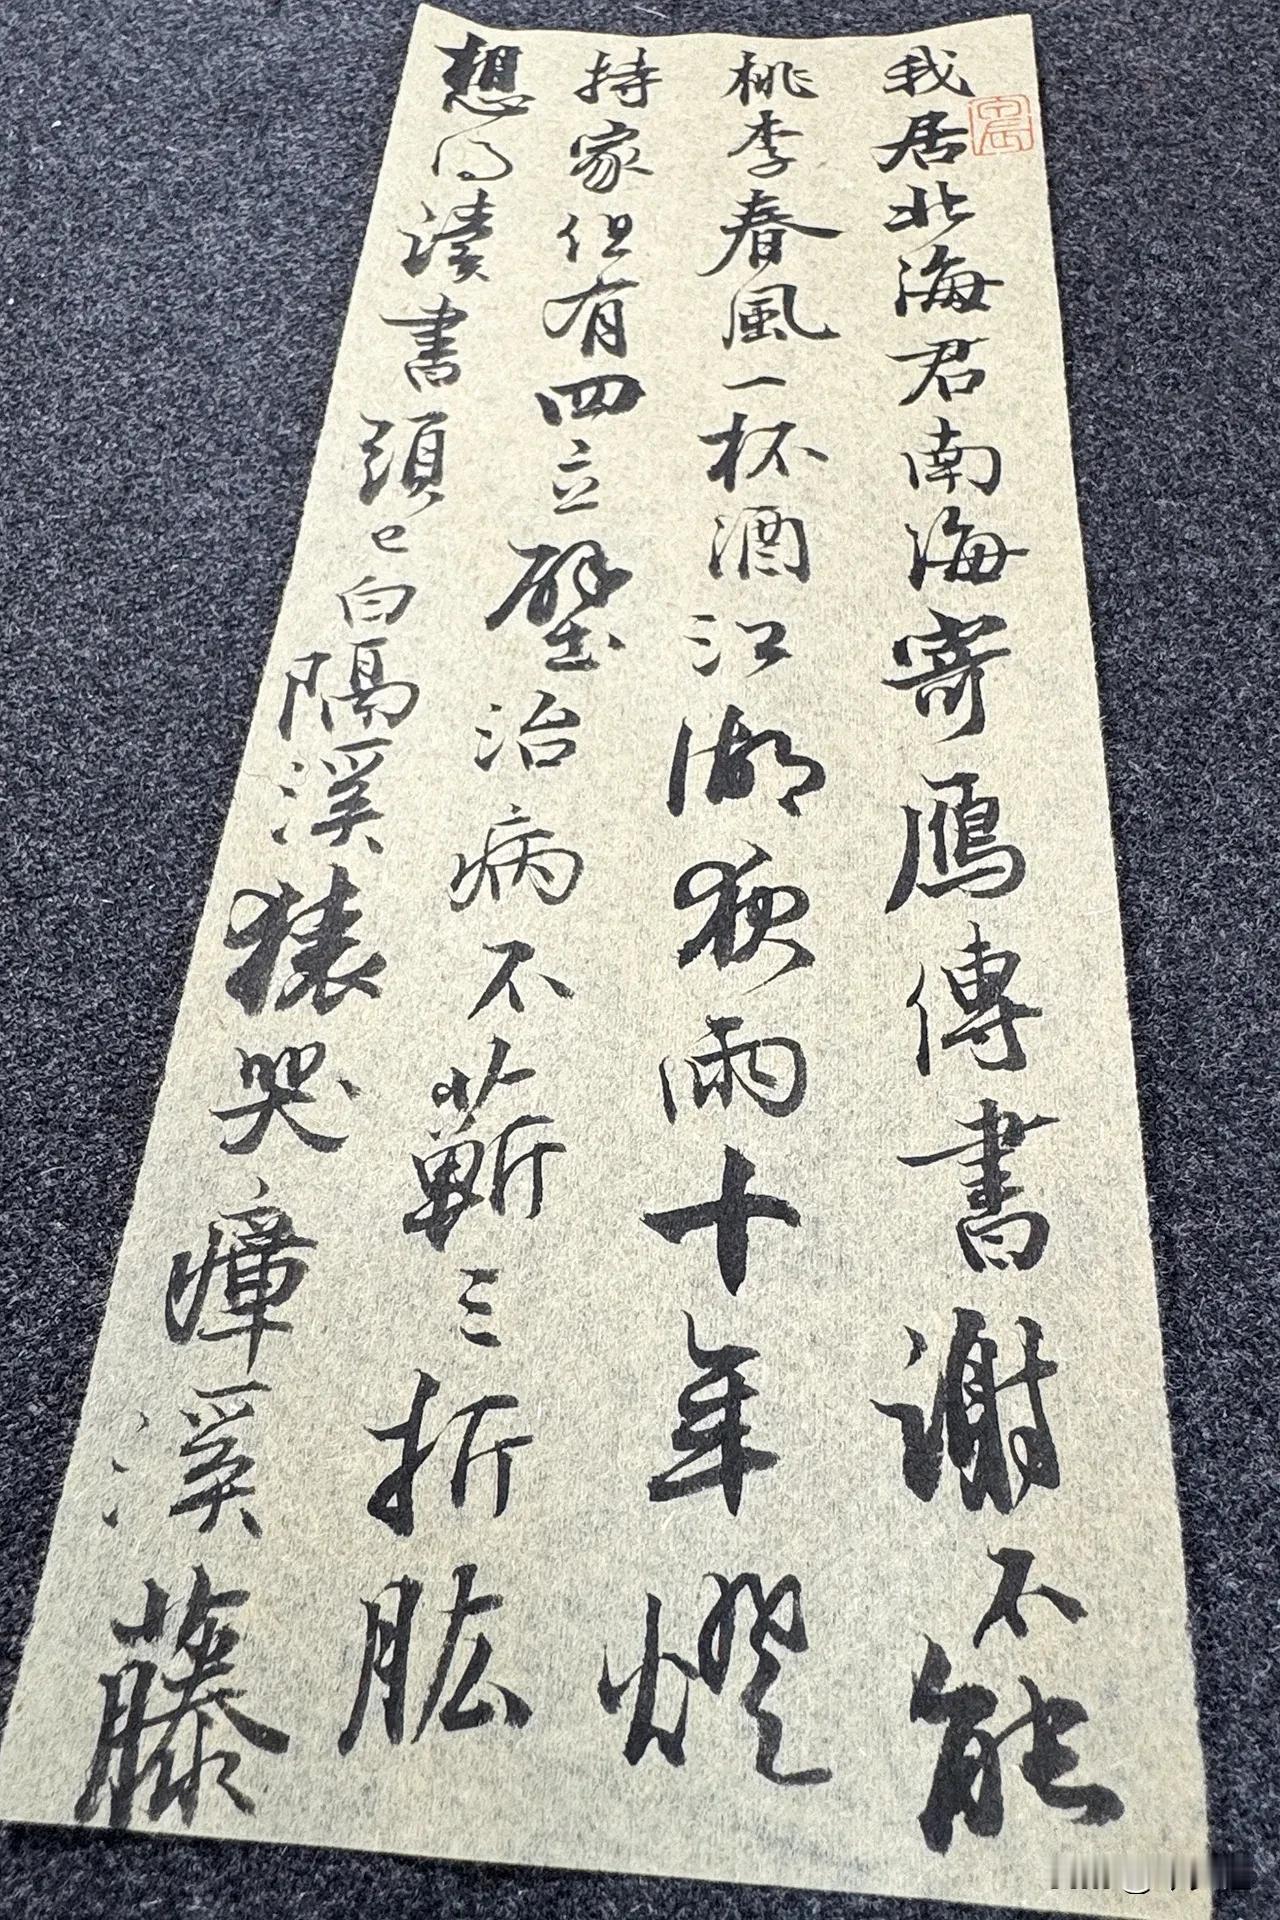 我居北海君南海寄鴈傳書謝不能
桃李春風一杯酒江湖夜雨十年燈
持家但有四立壁治病不蘄三折肱
想得讀書頭已白隔溪猿哭瘴溪藤